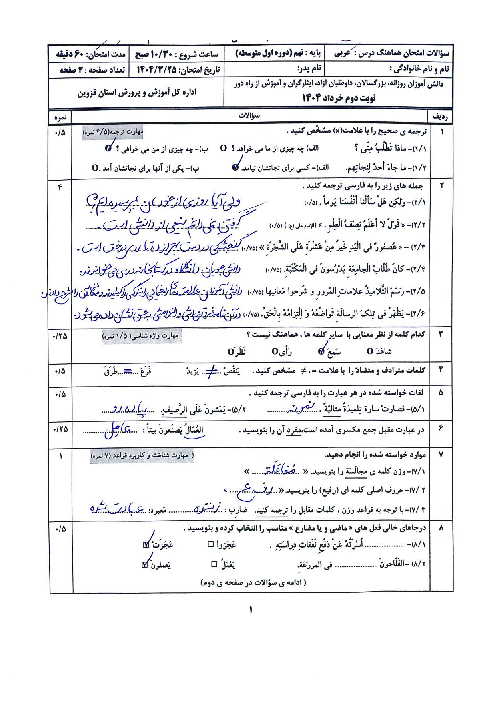 سؤالات امتحان هماهنگ درس : عربی
پایه : نهم (دوره اول متوسطه)
ساعت شروع : ۱۰/۳۰ صبح
مدت امتحان: ۶۰ دقیقه
نام و نام خانوادگی :
نام پدر:
تاریخ امتحان: ۱۴۰۴/۳/۲۵
تعداد صفحه : ۲ صفحه
دانش آموزان روزانه، بزرگسالان، داوطلبان آزاد، ایثارگران و آموزش از راه دور
نوبت دوم خرداد ۱۴۰۴
اداره کل آموزش و پرورش استان قزوین
ردیف سؤالات نمره
۱ ترجمه ی صحیح را با علامت(×) مشخص کنید . مهارت ترجمه(۴/۵ نمره) ۰/۵
۱/۱)- ماذا تَطلُبُ مِنّی ؟ الف)- چه چیزی از ما می خواهد ؟ ب)- چه چیزی از من می خواهی ؟
۱/۲)- ما جاءَ أَحدٌ لِنِجاتِهِم. الف)- کسی برای نجاتشان نیامد. ب)- یکی از آنها برای نجاتشان آمد.
۲ جمله های زیر را به فارسی ترجمه کنید . ۴
۲/۱)- وَلکِن هَل سَأَلنا أَنفُسَنا یَوماً . (۰/۵) ولی آیا روزی از خودمان پرسیده ایم؟
۲/۲)- « قَولُ لا أَعلَمُ نِصفُ العِلمِ . » (۰/۵) گفتن نمی دانم نیمی از دانش است.
۲/۳)- « عُصفورٌ فِی الیَدِ خَیرٌ مِن عَشَرَةٍ عَلَی الشَّجَرَةِ » (۰/۷۵) گنجشکی در دست بهتر از ده تا بر درخت است.
۲/۴)- کانَ طُلّابُ الجامِعَةِ یَدرُسونَ فِی المَکتَبَةِ. (۰/۷۵) دانشجویان دانشگاه در کتابخانه درس می خواندند.
۲/۵)- رَسَمَ التَّلامیذُ عَلاماتِ المُرورِ وَ شَرَحوا مَعانیَها (۰/۷۵)
۲/۶)- یَظهَرُ فی تِلکَ الرِسالَةِ تَواضُعُهُ وَ اِلتِزامُهُ بِالحَقِّ. (۰/۷۵)
۳ کدام کلمه از نظر معنایی با سایر کلمه ها ، هماهنگ نیست ؟ مهارت واژه شناسی (۱/۵ نمره) ۰/۲۵
شاهَدَ سَمِعَ رَأی نَظَرَ
۴ کلمات مترادف و متضاد را با علامت = ، ≠ مشخص کنید. یَنقُصُ ≠ یَزیدُ قَرَعَ = طَرَقَ ۰/۵
۵ لغات خواسته شده در هر عبارت را به فارسی ترجمه کنید . ۰/۵
۵/۱)- فَصارَت سارة تِلمیذَةً مِثالیَّةً . ۵/۲)- یَمشونَ عَلَی الرَّصیفِ. پیاده رو
۶ در عبارت مقابل جمع مکسری آمده است مفرد آن را بنویسید . العُمّالُ یَصنَعونَ بیتاً : عامل ۰/۲۵
۷ موارد خواسته شده را انجام دهید. ( مهارت شناخت و کاربرد قواعد (۷ نمره) ۱
۷/۱)- وزن کلمه ی مجالَسة را بنویسید. « مفاعلة »
۷/۲)- حروف اصلی کلمه ای (رفیع) را بنویسید. « رفع »
۷/۳)- با توجه به قاعده وزن ، کلمات مقابل را ترجمه کنید. ضارب :
۸ درجاهای خالی فعل های « ماضی و یا مضارع » مناسب را انتخاب کرده و بنویسید . ۰/۵
۸/۱)- ............ أُسرَتُهُ عَن دَفعِ نَفَقاتِ دِراسَتِهِ . عَجَزوا عَجَزَت
۸/۲)- الفَلّاحونَ ............ فِی المَزرَعَة. یَعمَلُ یَعملونَ
( ادامه ی سؤالات در صفحه ی دوم)
۱